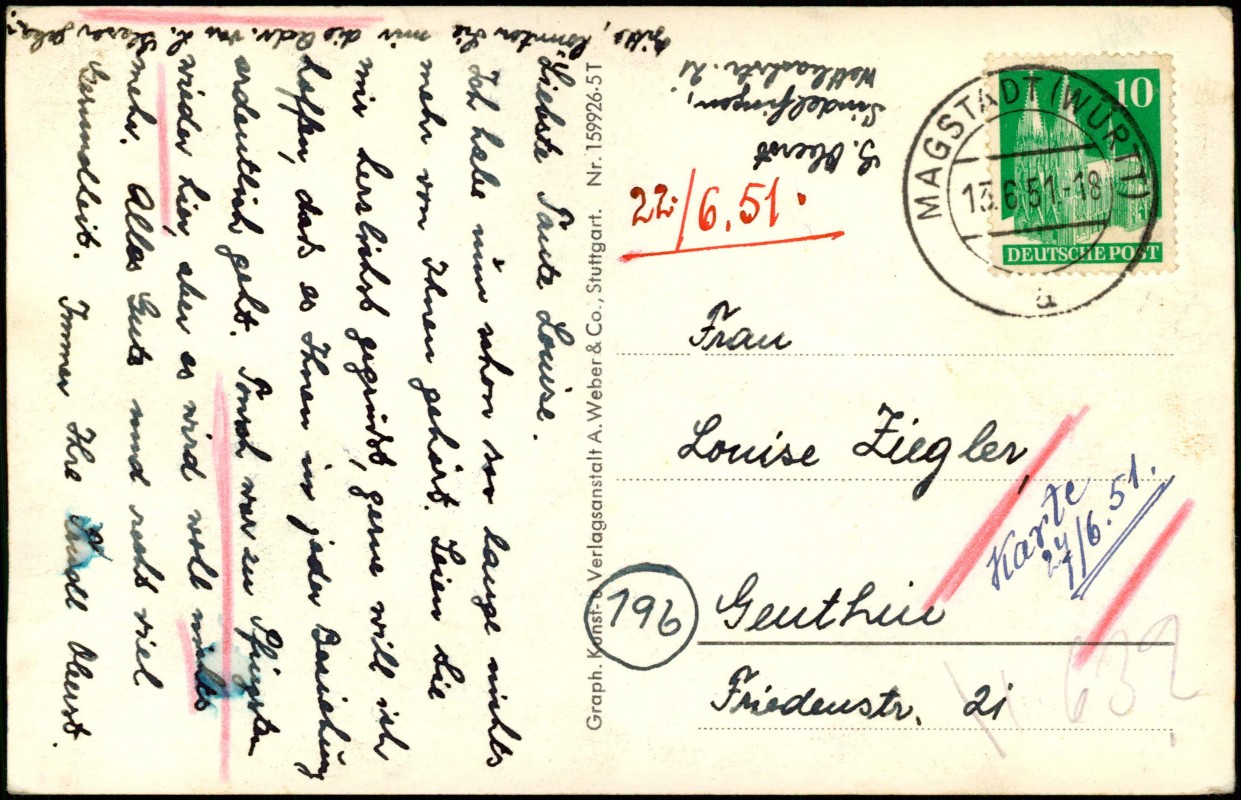 Liebste Tante Louise.
Ich habe nun schon so lange nichts
mehr von Ihnen gehört. Seien Sie
mir herzlichst gegrüßt, gerne will ich
hoffen, daß es Ihnen in jeder Beziehung
ordentlich geht. war zu Pfingsten
wieder hier, aber es wird wohl nichts
mehr. Alles Gute und recht viel
Gesundheit. Immer Ihre Oberst.
Bitte, könnten Sie mir die Adr. von L. geben?
Graph. Konst- u. Verlagsanstalt A. Weber & Co., Stuttgart. Nr. 159926.5T
Oberst
Sindelfingen,
22./6.51.
MAGSTADT (WÜRTT)
13.6.51.-18
a
10
DEUTSCHE POST
Frau
Louise Ziegler
Karte
24/6.51.
19b
Genthin
Friedenstr. 21